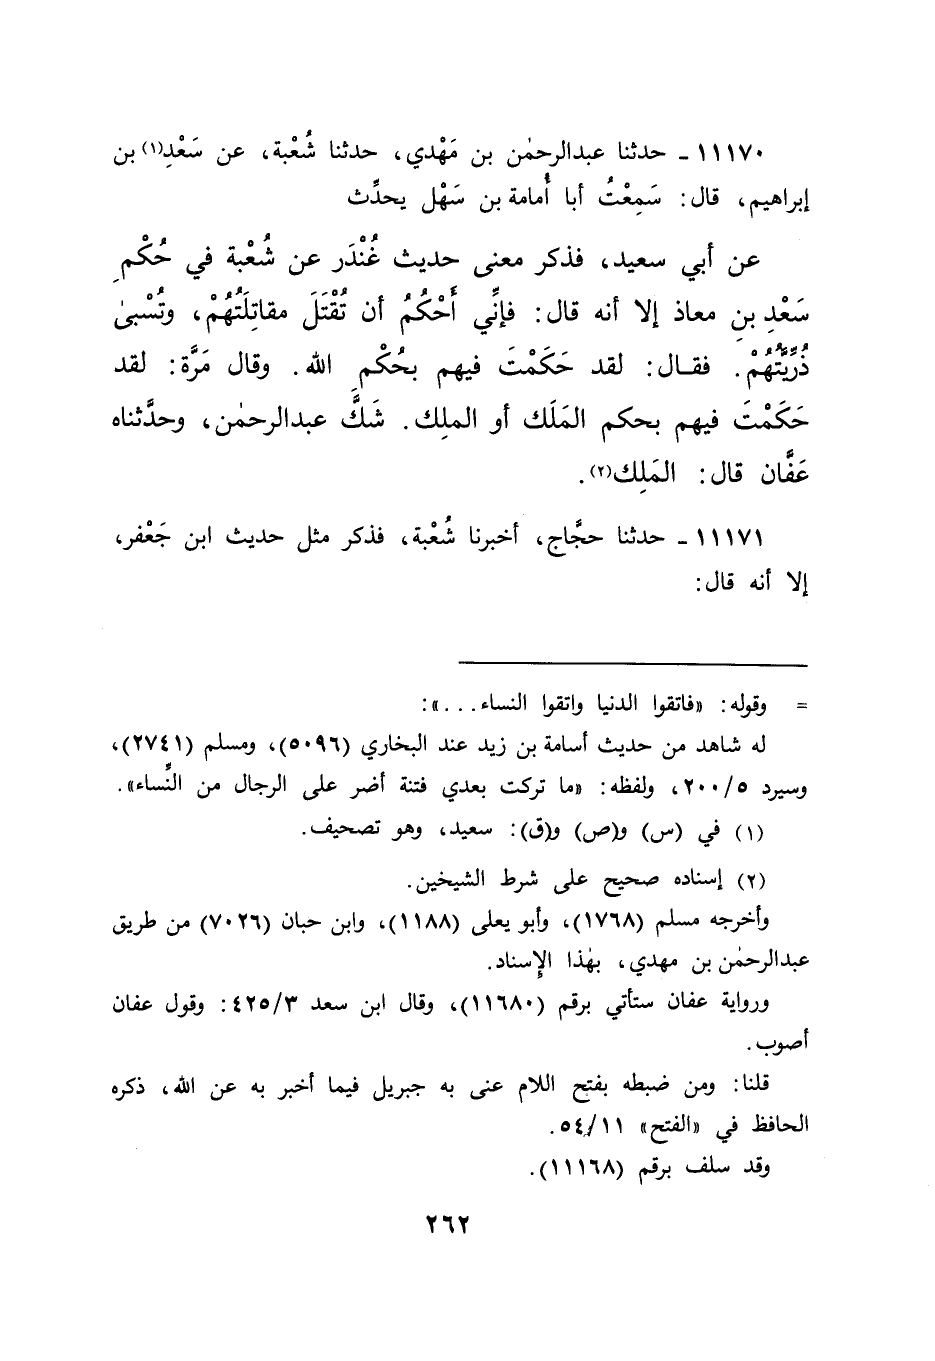 ١١١٧٠ ـ حدثنا عبدالرحمٰن بن مَهْدي، حدثنا شُعْبة، عن سَعْدِ(١) بن
إبراهيم، قال: سَمِعْتُ أبا أُمامة بن سَهْل يحدِّث
عن أبي سعيد، فذكر معنى حديث غُنْدَر عن شُعْبة في حُكْمِ
سَعْدِ بنِ معاذ إلا أنه قال: فإنِّي أَحْكُمُ أن تُقْتَلَ مقاتِلَتُهُمْ، وتُسْبىٰ
ذُرِّيَّتُهُمْ. فقال: لقد حَكَمْتَ فيهم بحُكْمِ الله. وقال مَرَّة: لقد
حَكَمْتَ فيهم بحكم المَلَك أو الملِك. شَكَّ عبدالرحمٰن، وحدَّثناه
عَفَّان قال: المَلِك(٢).
١١١٧١ ـ حدثنا حجَّاج، أخبرنا شُعْبة، فذكر مثل حديث ابن جَعْفر،
إلا أنه قال:
= وقوله: «فاتقوا الدنيا واتقوا النساء...»:
له شاهد من حديث أسامة بن زيد عند البخاري (٥٠٩٦)، ومسلم (٢٧٤١)،
وسيرد ٢٠٠/٥، ولفظه: «ما تركت بعدي فتنة أضر على الرجال من النِّساء».
(١) في (س) و(ص) و(ق): سعيد، وهو تصحيف.
(٢) إسناده صحيح على شرط الشيخين.
وأخرجه مسلم (١٧٦٨)، وأبو يعلى (١١٨٨)، وابن حبان (٧٠٢٦) من طريق
عبدالرحمٰن بن مهدي، بهٰذا الإِسناد.
ورواية عفان ستأتي برقم (١١٦٨٠)، وقال ابن سعد ٤٢٥/٣: وقول عفان
أصوب.
قلنا: ومن ضبطه بفتح اللام عنى به جبريل فيما أخبر به عن الله، ذكره
الحافظ في «الفتح» ٥٤/١١.
وقد سلف برقم (١١١٦٨).
٢٦٢